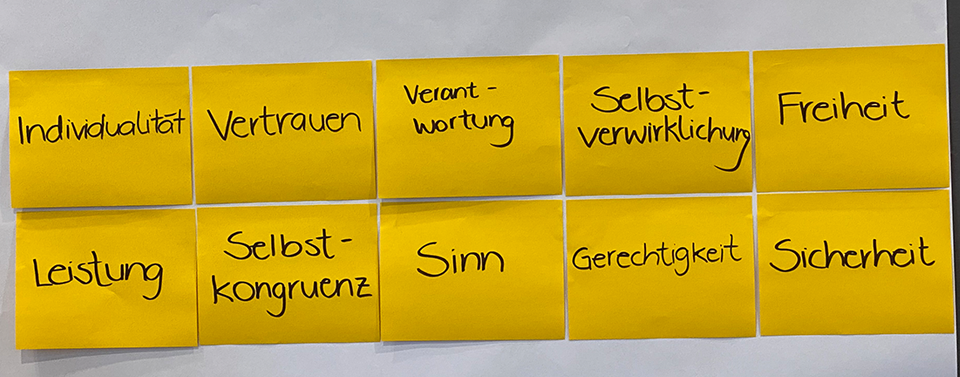 Individualität
Vertrauen
Verant-
wortung
Selbst-
verwirklichung
Freiheit
Leistung
Selbst-
kongruenz
Sinn
Gerechtigkeit
Sicherheit